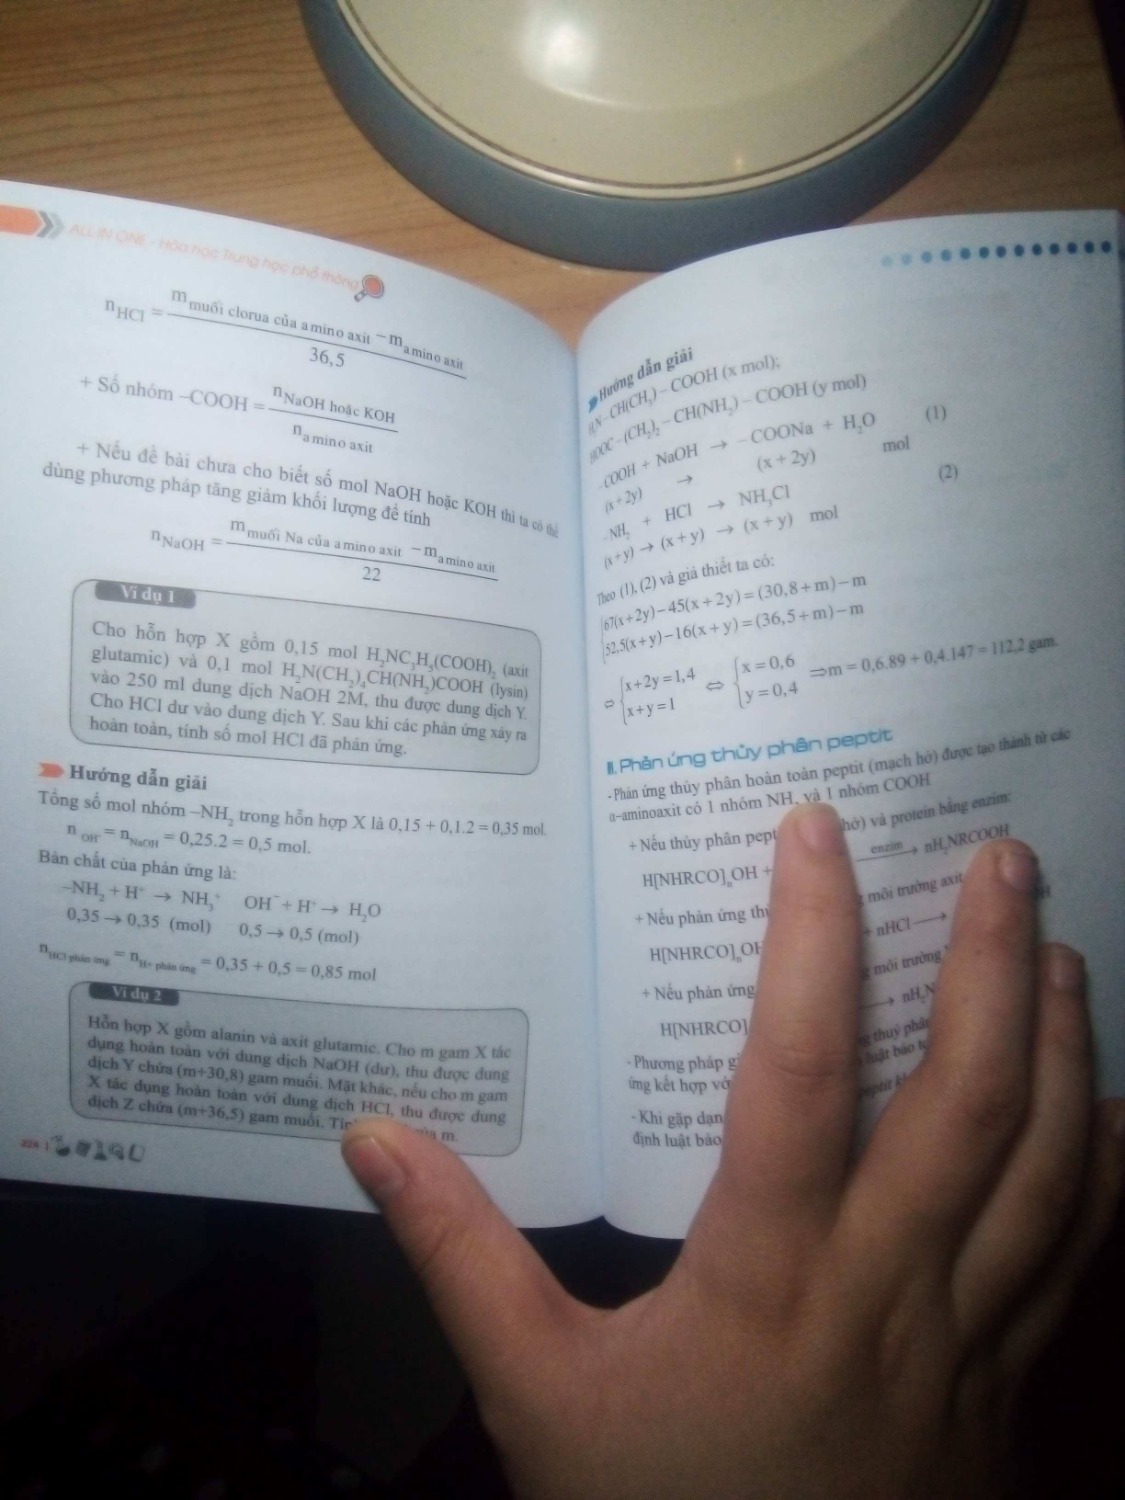 ALL IN ONE - Hóa học Trung học phổ thông
n HCl = m muối clorua của amino axit − m amino axit / 36,5
+ Số nhóm –COOH = n NaOH hoặc KOH / n amino axit
+ Nếu đề bài chưa cho biết số mol NaOH hoặc KOH thì ta có thể
dùng phương pháp tăng giảm khối lượng để tính
n NaOH = m muối Na của amino axit − m amino axit / 22
Ví dụ 1
Cho hỗn hợp X gồm 0,15 mol H₂NC₃H₅(COOH)₂ (axit
glutamic) và 0,1 mol H₂N(CH₂)₄CH(NH₂)COOH (lysin)
vào 250 ml dung dịch NaOH 2M, thu được dung dịch Y.
Cho HCl dư vào dung dịch Y. Sau khi các phản ứng xảy ra
hoàn toàn, tính số mol HCl đã phản ứng.
Hướng dẫn giải
Tổng số mol nhóm –NH₂ trong hỗn hợp X là 0,15 + 0,1.2 = 0,35 mol.
n OH⁻ = n NaOH = 0,25.2 = 0,5 mol.
Bản chất của phản ứng là:
–NH₂ + H⁺ → NH₃⁺ OH⁻ + H⁺ → H₂O
0,35 → 0,35 (mol) 0,5 → 0,5 (mol)
n HCl phản ứng = n H+ phản ứng = 0,35 + 0,5 = 0,85 mol
Ví dụ 2
Hỗn hợp X gồm alanin và axit glutamic. Cho m gam X tác
dụng hoàn toàn với dung dịch NaOH (dư), thu được dung
dịch Y chứa (m+30,8) gam muối. Mặt khác, nếu cho m gam
X tác dụng hoàn toàn với dung dịch HCl, thu được dung
dịch Z chứa (m+36,5) gam muối. m.
226
Hướng dẫn giải
H₂N – CH(CH₃) – COOH (x mol);
HOOC – (CH₂)₂ – CH(NH₂) – COOH (y mol)
–COOH + NaOH → – COONa + H₂O (1)
(x+2y) → (x + 2y) mol
–NH₂ + HCl → NH₃Cl (2)
(x+y) → (x + y) → (x + y) mol
Theo (1), (2) và giả thiết ta có:
67(x+2y) − 45(x + 2y) = (30,8 + m) − m
52,5(x+y) − 16(x + y) = (36,5 + m) − m
⇔ { x + 2y = 1,4 ⇔ { x = 0,6 ⇒ m = 0,6.89 + 0,4.147 = 112,2 gam.
x + y = 1 y = 0,4
II. Phản ứng thủy phân peptit
- Phản ứng thủy phân hoàn toàn peptit (mạch hở) được tạo thành từ các
α–aminoaxit có 1 nhóm NH₂ và 1 nhóm COOH
+ Nếu thủy phân hở) và protein bằng enzim:
H[NHRCO]ₙOH + enzim → nH₂NRCOOH
+ Nếu phản ứng môi trường axit
H[NHRCO]ₙ + nHCl →
+ Nếu phản ứng môi trường
H[NHRCO] →
- Phương pháp thuỷ phân
ứng kết hợp luật bảo
- Khi gặp peptit
định luật